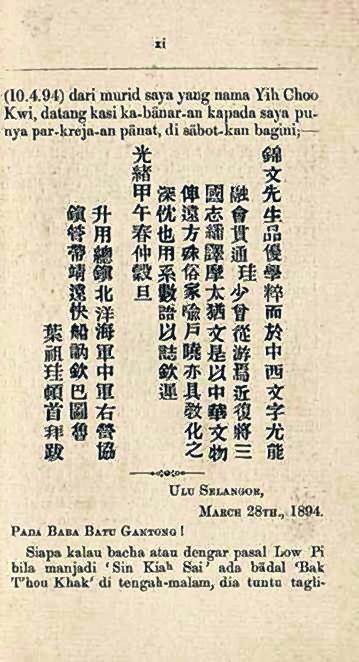 xi
(10.4.94) dari murid saya yang nama Yih Choo
Kwi, datang kasi ka-bănar-an kapada saya pu-
nya par-kreja-an pănat, di săbot-kan bagini;—
錦文先生品優學粹而於中西文字尤能
融會貫通珪少曾從游焉近復將三
國志繙譯摩太猶文是以中華文物
俾遠方殊俗家喻戶曉亦具教化之
深忱也用系數語以誌欽遲
光緒甲午春仲穀旦
升用總鎮北洋海軍中軍右營協
鎮管帶靖遠快船訥欽巴圖魯
葉祖珪頓首拜跋
Ulu Selangor,
March 28th., 1894.
Pada Baba Batu Gantong!
Siapa kalau bacha atau dengar pasal Low Pi
bila manjadi 'Sin Kiah Sai' ada bădal 'Bak
T'hou Khak' di tengah-malam, dia tuntu tagli-